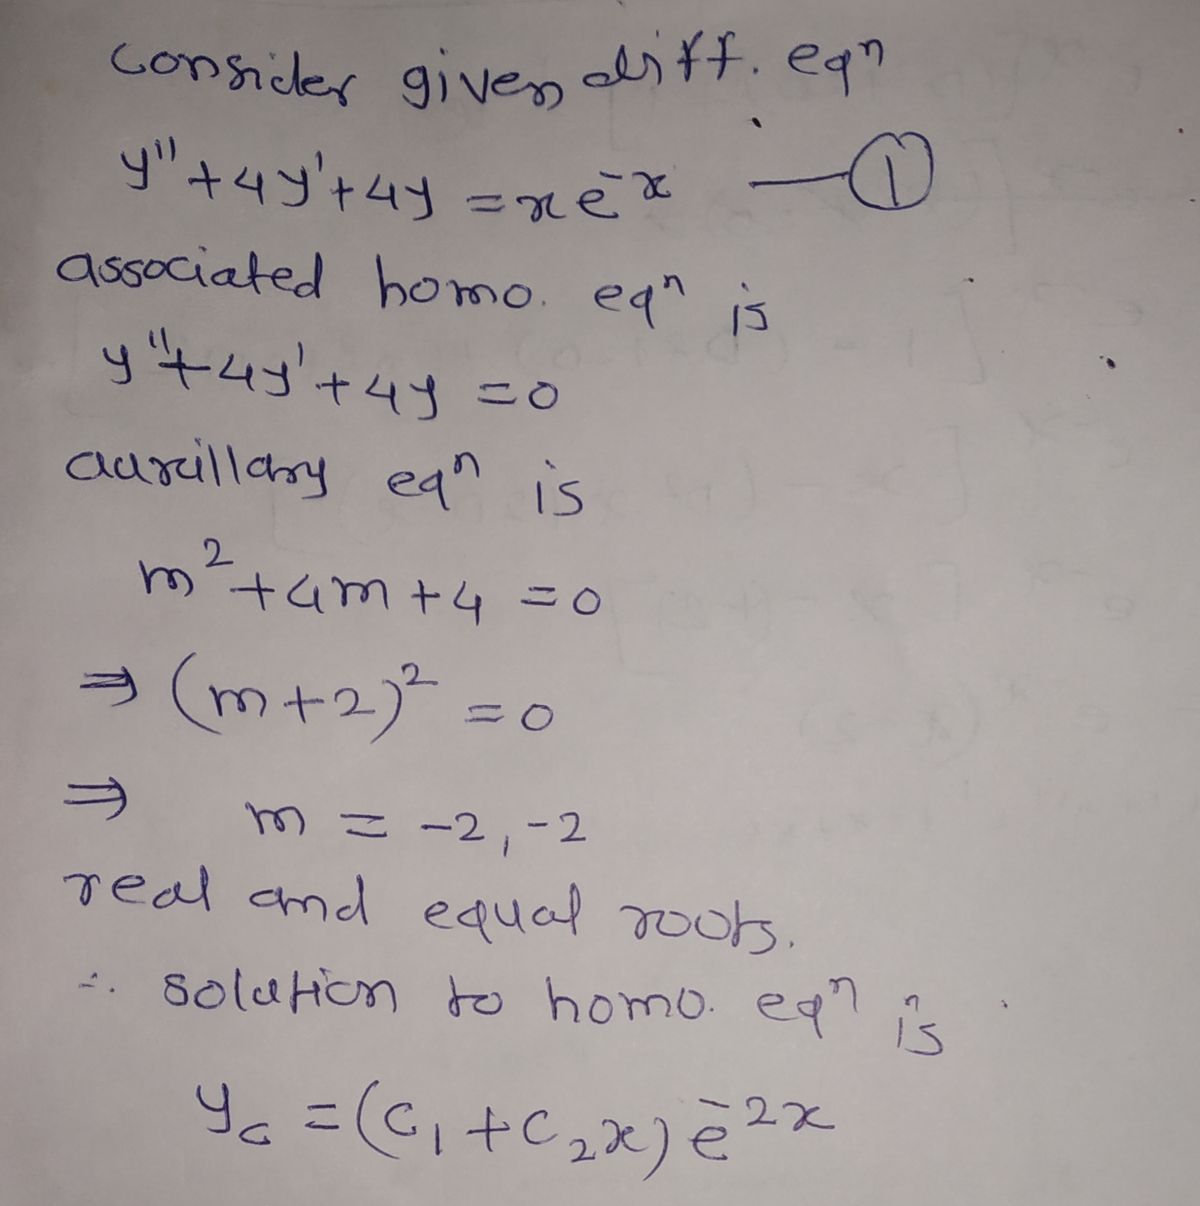 consider given diff. eqⁿ
y" + 4y' + 4y = xe⁻ˣ —①
associated homo. eqⁿ is
y" + 4y' + 4y = 0
auxillary eqⁿ is
m² + 4m + 4 = 0
⇒ (m+2)² = 0
⇒ m = -2, -2
real and equal roots.
∴ solution to homo. eqⁿ is
y_c = (c₁ + c₂x) e⁻²ˣ